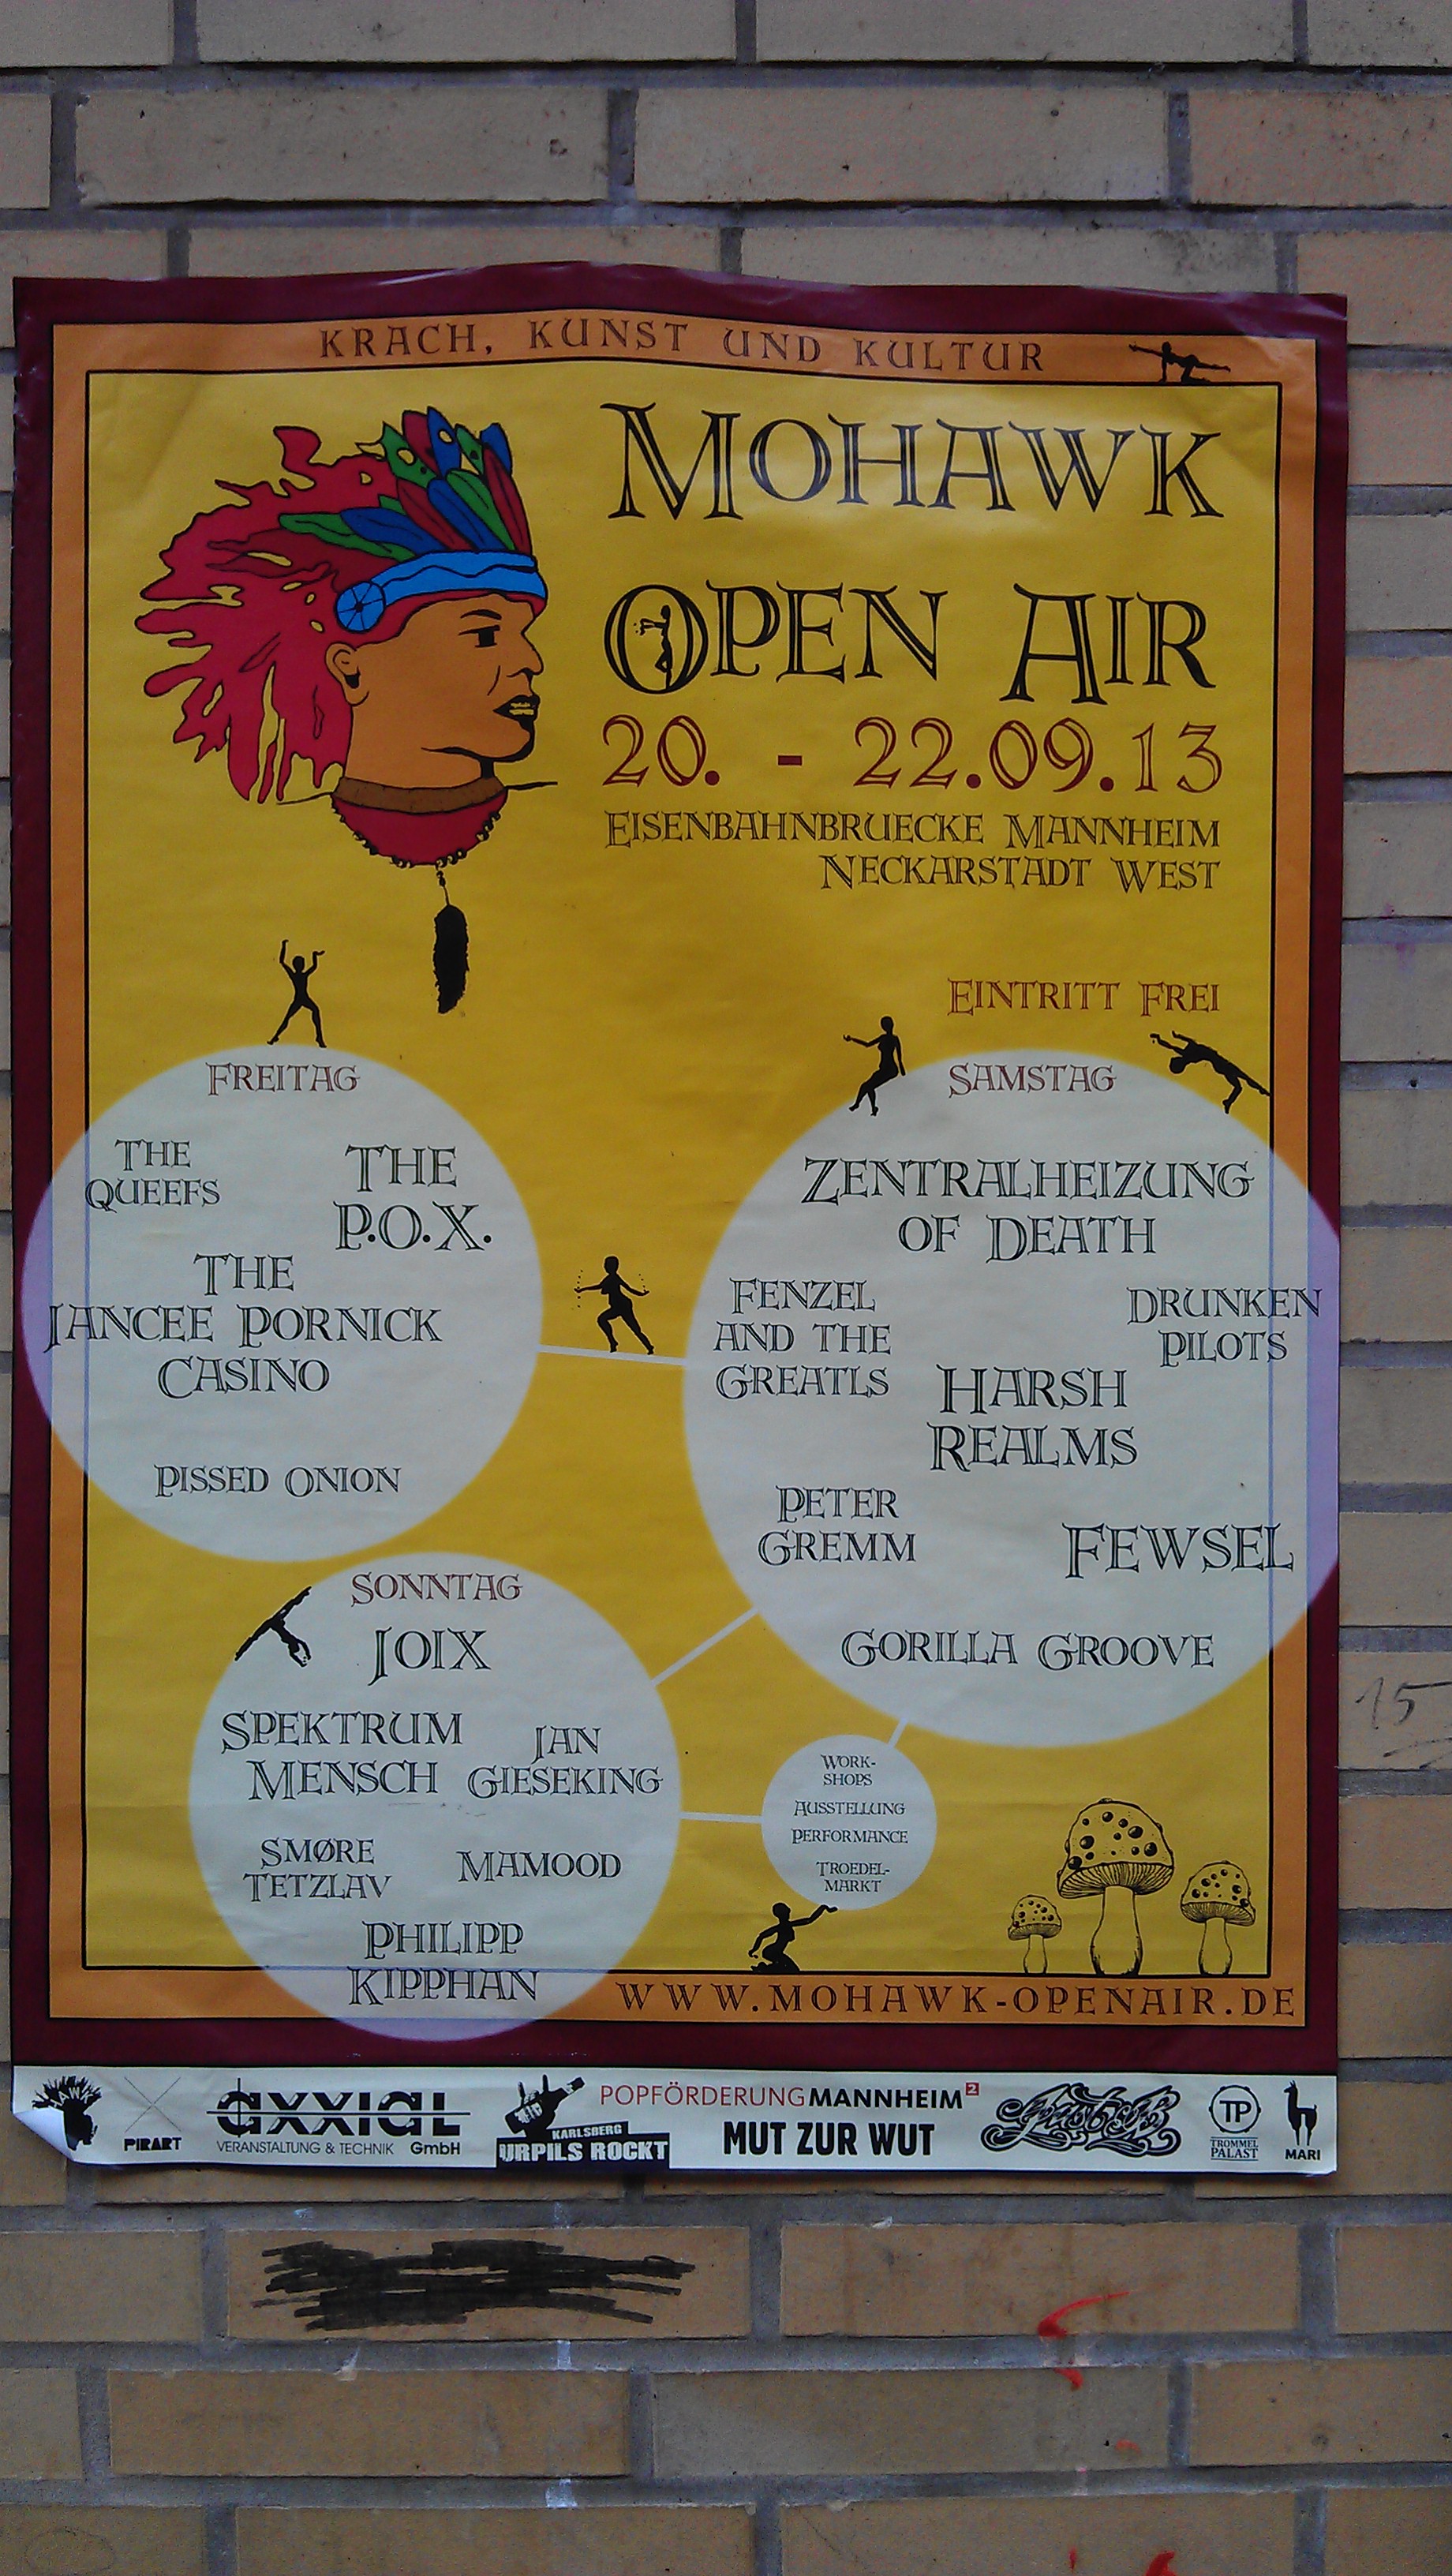 KRACH, KUNST UND KULTUR
MOHAWK
OPEN AIR
20. - 22.09.13
EISENBAHNBRUECKE MANNHEIM
NECKARSTADT WEST
EINTRITT FREI
FREITAG
THE
QUEEFS
THE
P.O.X.
THE
JANCEE PORNICK
CASINO
PISSED ONION
SAMSTAG
ZENTRALHEIZUNG
OF DEATH
FENZEL
AND THE
GREATLS
DRUNKEN
PILOTS
HARSH
REALMS
PETER
GREMM
FEWSEL
GORILLA GROOVE
SONNTAG
JOIX
SPEKTRUM
MENSCH
JAN
GIESEKING
SMØRE
TETZLAV
MAMOOD
PHILIPP
KIPPHAN
WORK-
SHOPS
AUSSTELLUNG
PERFORMANCE
TROEDEL-
MARKT
WWW.MOHAWK-OPENAIR.DE
PIRART
axxial
VERANSTALTUNG & TECHNIK GmbH
KARLSBERG
URPILS ROCKT
POPFÖRDERUNGMANNHEIM2
MUT ZUR WUT
TP
TROMMEL
PALAST
MARI
15